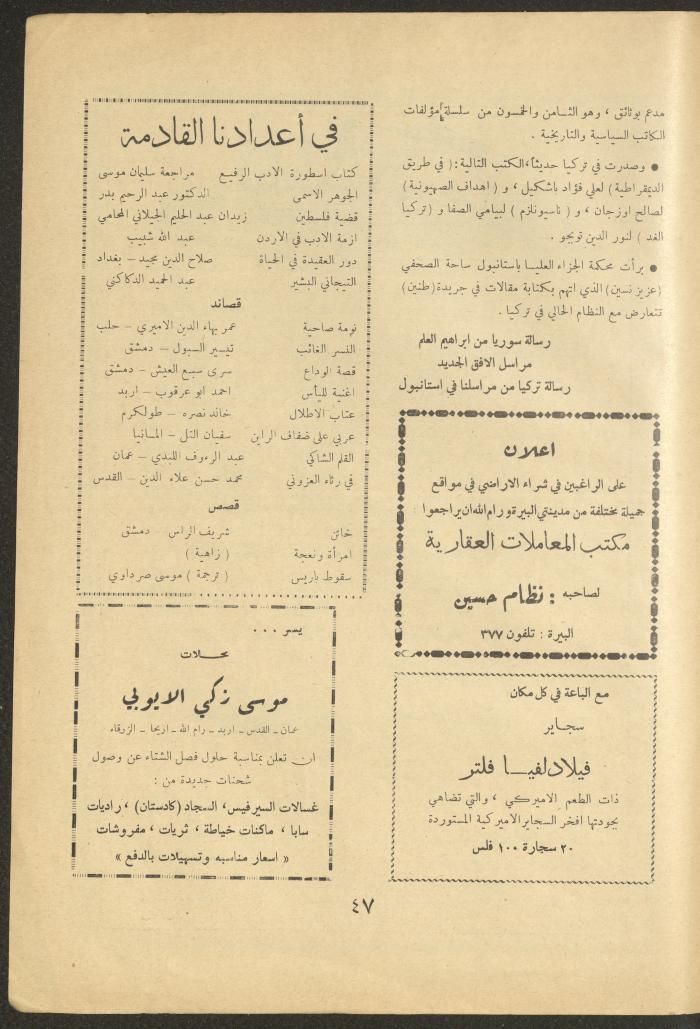 مدعم بوثائق ، وهو الثامن والخمسون من سلسلة مؤلفات
الكاتب السياسية والتاريخية .
● وصدرت في تركيا حديثاً،الكتب التالية:( في طريق
الديمقراطية ) لعلي فؤاد باشكيل ، و ( اهداف الصهيونية )
لصالح اوزجان ، و ( ناسيونالزم ) لبيامي الصفا و ( تركيا
الغد ) لنور الدين توبجو .
● برأت محكمة الجزاء العليا باستانبول ساحة الصحفي
(عزيز نسين) الذي اتهم بكتابة مقالات في جريدة(طنين)
تتعارض مع النظام الحالي في تركيا .
رسالة سوريا من ابراهيم العلم
مراسل الافق الجديد
رسالة تركيا من مراسلنا في استانبول
اعلان
على الراغبين في شراء الاراضي في مواقع
جميلة مختلفة من مدينتي البيرة ورام الله ان يراجعوا
مكتب المعاملات العقارية
لصاحبه : نظام حسين
البيرة : تلفون ٣٧٧
مع الباعة في كل مكان
سجاير
فيلادلفيا فلتر
ذات الطعم الاميركي ، والتي تضاهي
بجودتها افخر السجاير الاميركية المستوردة
٢٠ سجارة ١٠٠ فلس
في أعدادنا القادمة
كتاب اسطورة الادب الرفيع مراجعة سليمان موسى
الجوهر الاسمى الدكتور عبد الرحيم بدر
قضية فلسطين زيدان عبد الحليم الجيلاني المحامي
ازمة الادب في الاردن عبد الله شبيب
دور العقيدة في الحياة صلاح الدين مجيد – بغداد
التيجاني البشير عبد الحميد الدكاكني
قصائد
نومة صاحية عمر بهاء الدين الاميري – حلب
النسر الغائب تيسير السبول – دمشق
قصة الوداع سرى سبع العيش – دمشق
اغنية لليأس احمد ابو عرقوب – اربد
عتاب الاطلال خالد نصره – طولكرم
عربي على ضفاف الراين سفيان التل – المانيا
القلم الشاكي عبد الرءوف اللبدي – عمان
في رثاء العزوني محمد حسن علاء الدين – القدس
قصص
خائن شريف الراس دمشق
امرأة ونعجة ( زاهية )
سقوط باريس ( ترجمة ) موسى صرداوي
يسر ...
محلات
موسى زكي الايوبي
عمان – القدس – اربد – رام الله – اريحا – الزرقاء
ان تعلن بمناسبة حلول فصل الشتاء عن وصول
شحنات جديدة من :
غسالات السيرفيس، السجاد (كادستان) ، راديات
سابا ، ماكنات خياطة ، ثريات ، مفروشات
« اسعار مناسبه وتسهيلات بالدفع »
٤٧